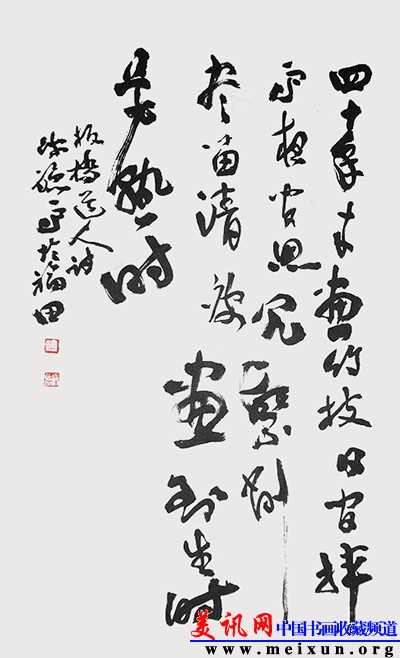 四十年来畫竹枝日间挥
写夜间思冗繁削
尽留清瘦畫到生时
是熟时
板橋道人诗
写于福田
美讯网 中国书画收藏频道
www.meixun.org